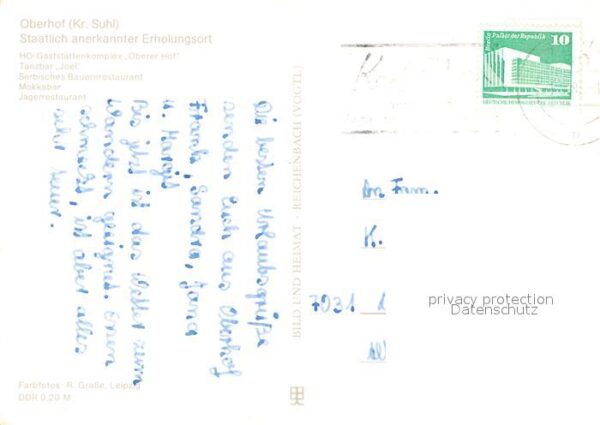 Oberhof (Kr. Suhl)
Staatlich anerkannter Erholungsort
HO-Gaststättenkomplex „Oberer Hof"
Tanzbar „Joel"
Serbisches Bauernrestaurant
Mokkabar
Jägerrestaurant
Die besten Urlaubsgrüße
senden Euch aus Oberhof
Frank, Sandra, Jana
u. Margit
Bis jetzt ist das Wetter zum
Wandern geeignet. Essen
schmeckt, ist aber alles
sehr teuer.
BILD UND HEIMAT · REICHENBACH (VOGTL)
Berlin Palast der Republik
10
DEUTSCHE DEMOKRATISCHE REPUBLIK
An Fam.
K.
7031 L
W
privacy protection
Datenschutz
Farbfotos: R. Große, Leipzig
DDR 0,20 M